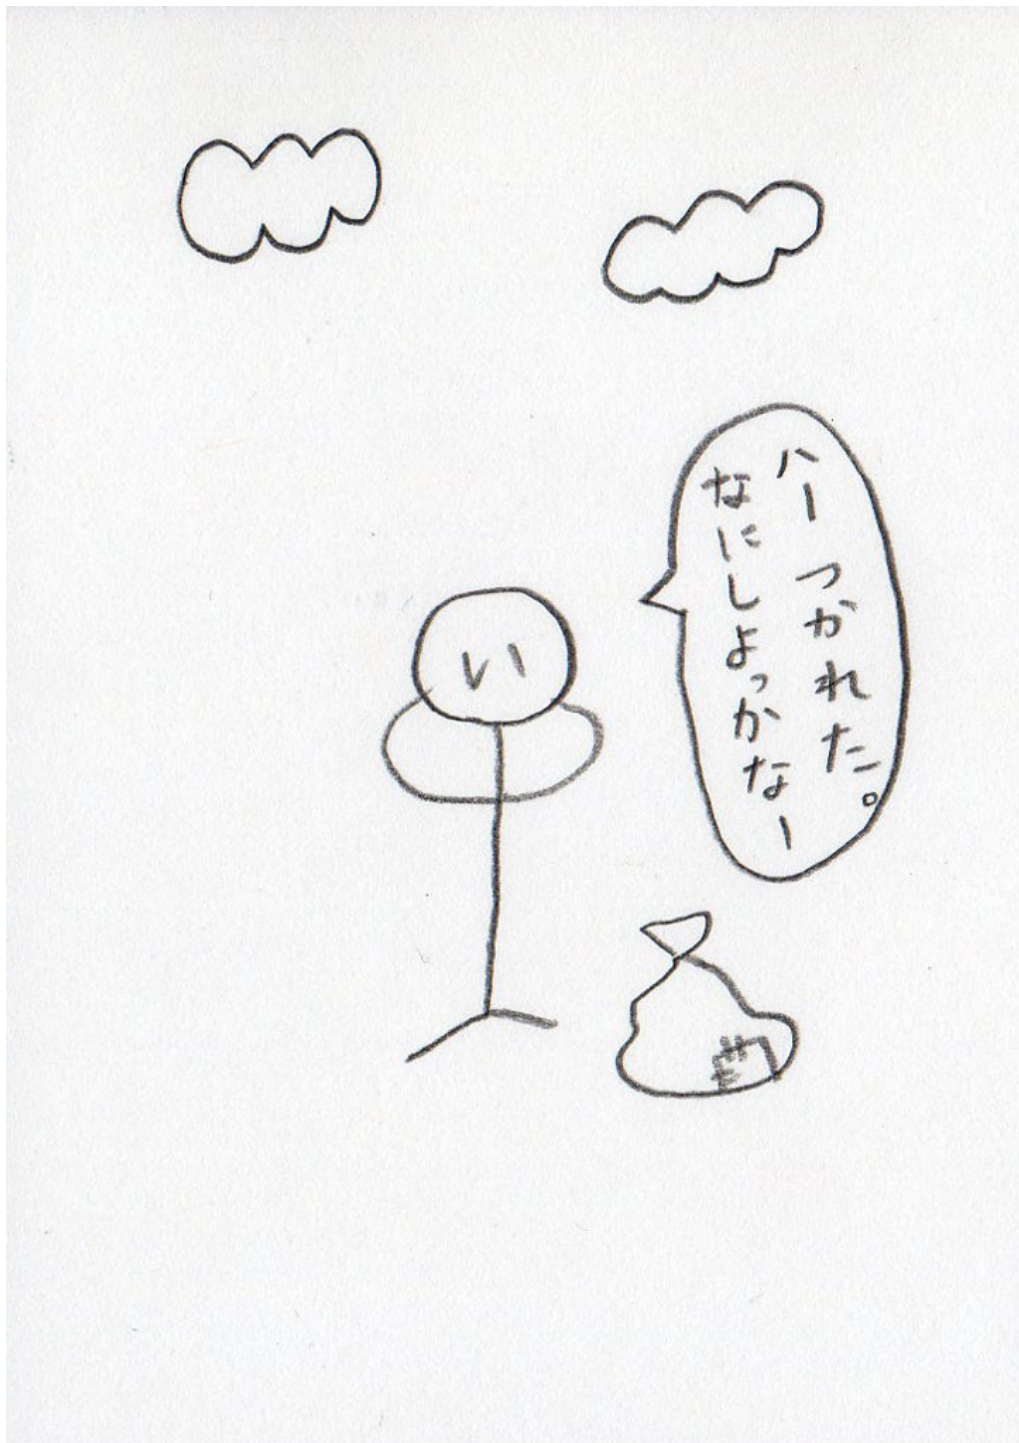 ハーつかれた。
なにしよっかなー
い